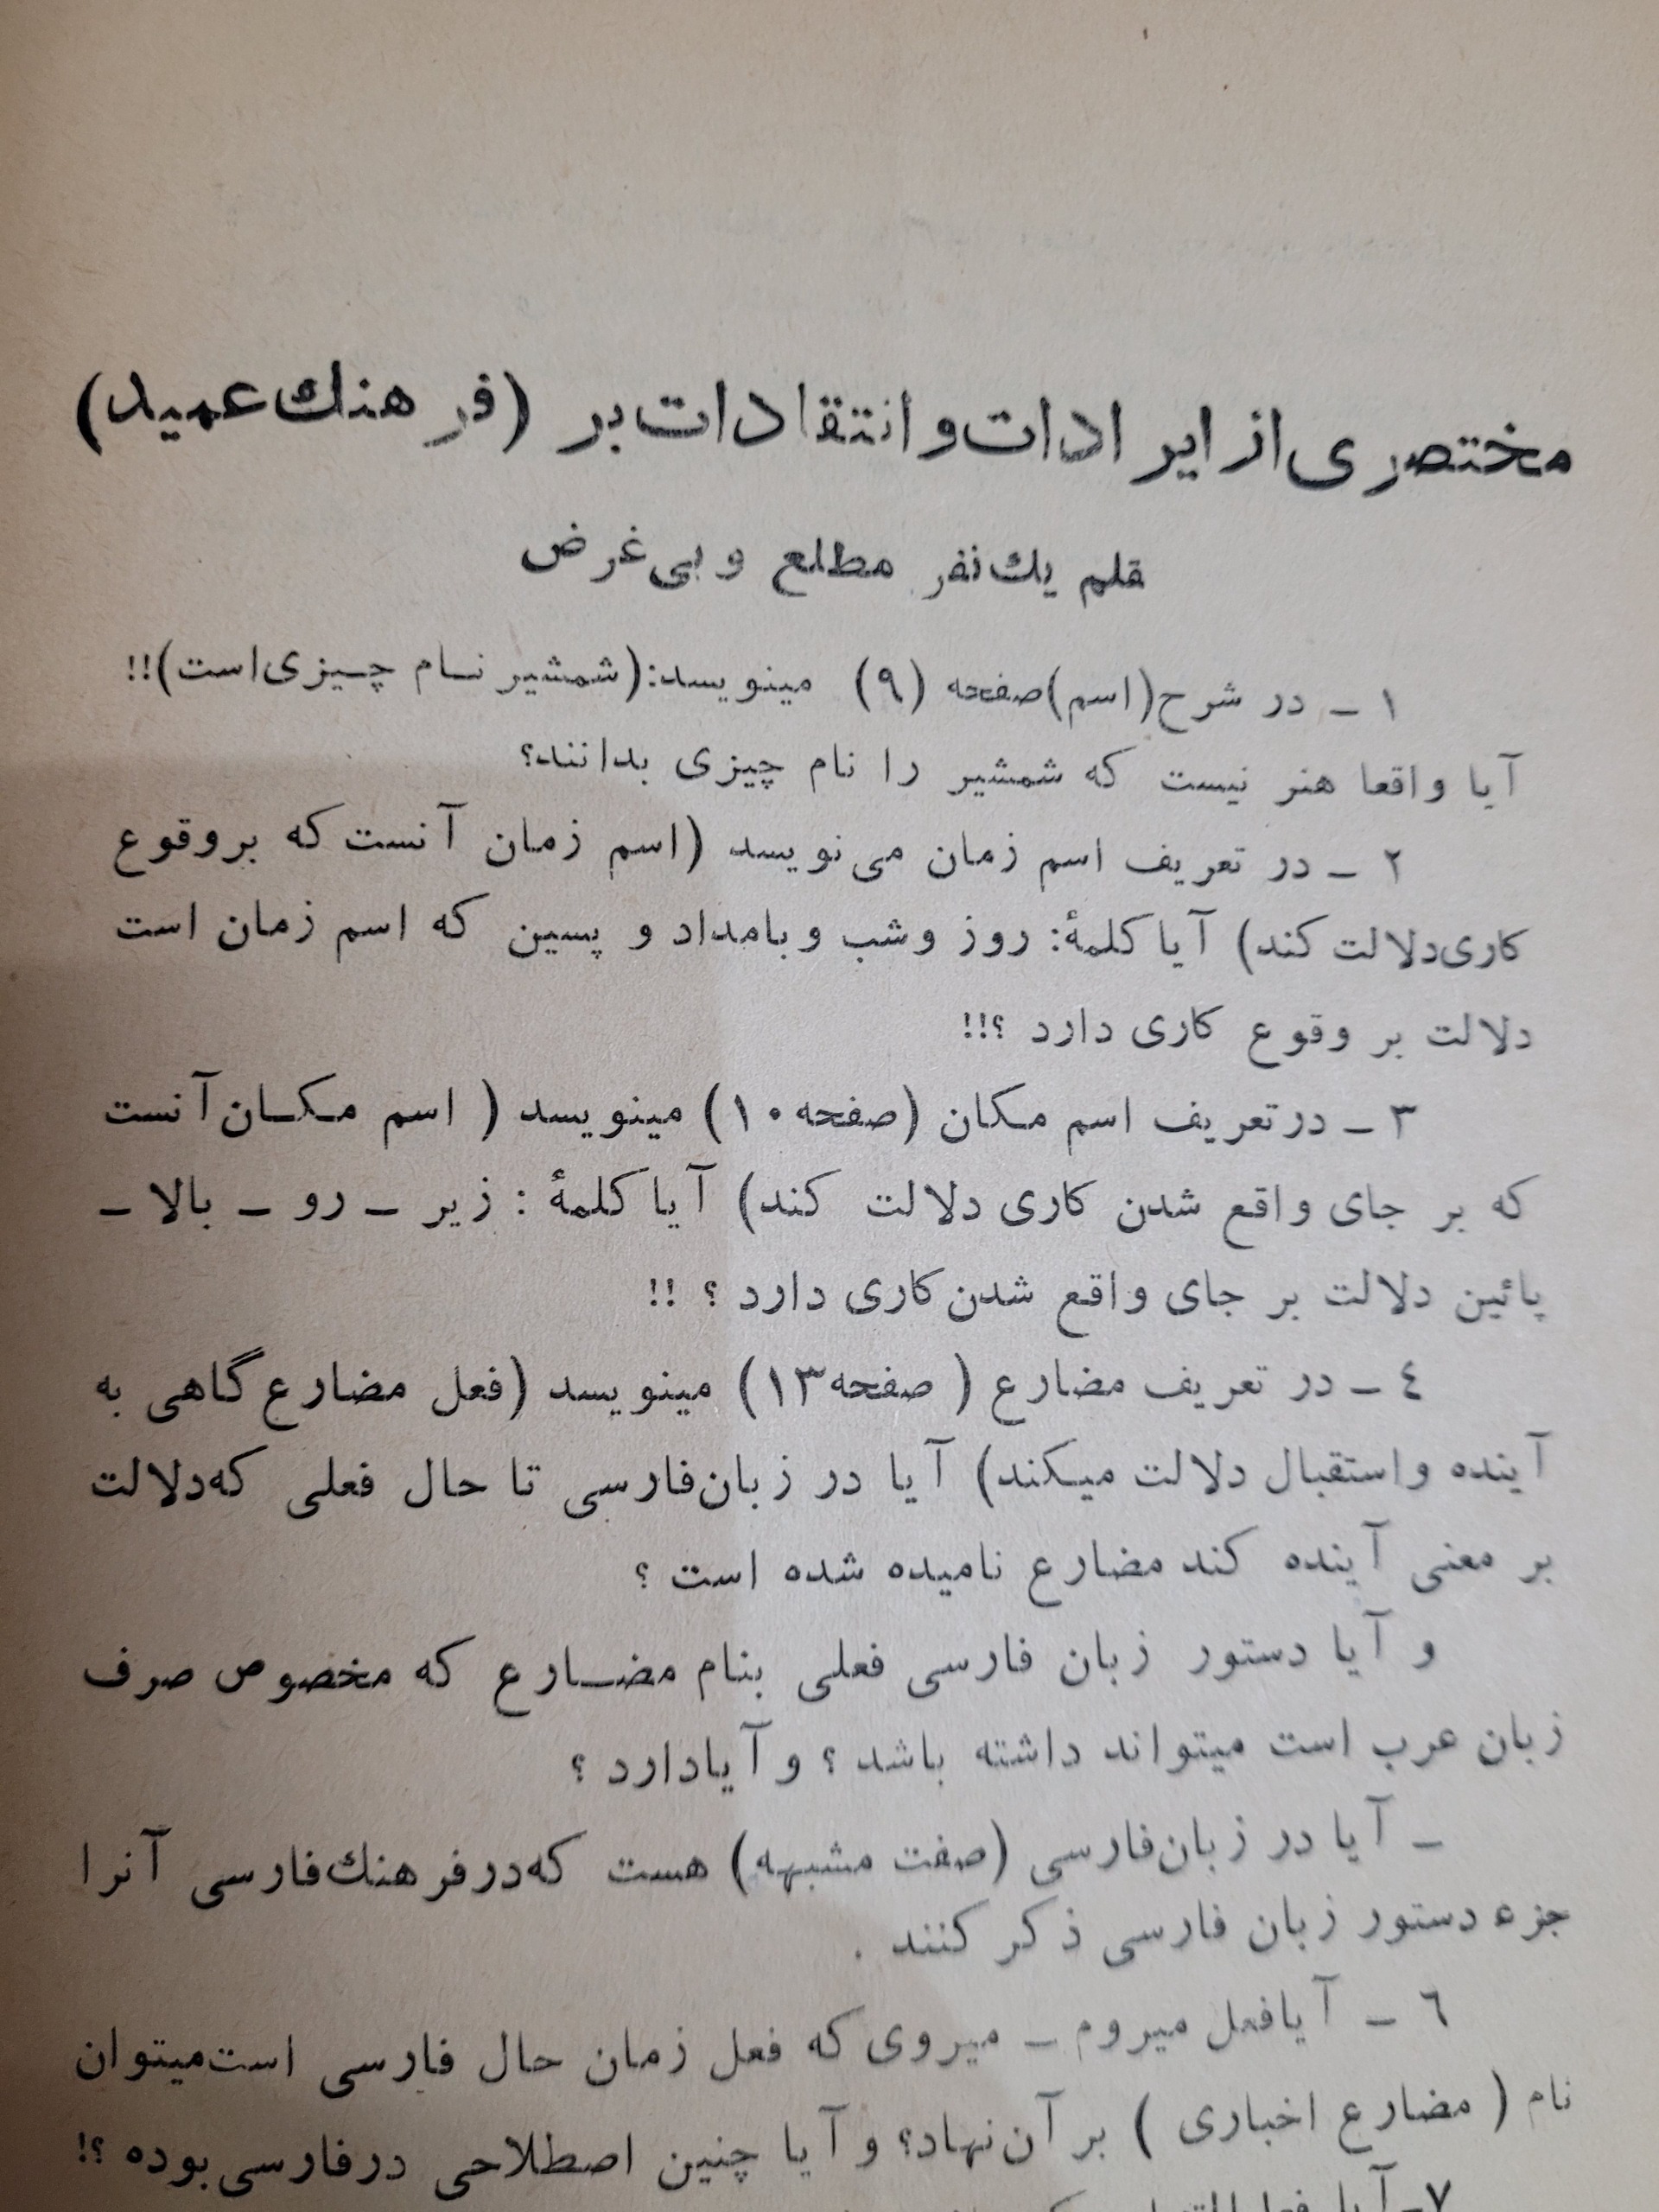 مختصری از ایرادات و انتقادات بر (فرهنك عمید)
قلم يك نفر مطلع و بی غرض
۱ ــ در شرح (اسم) صفحه (۹) مینویسد: (شمشیر نام چیزی است)!!
آیا واقعا هنر نیست که شمشیر را نام چیزی بدانند؟
۲ ــ در تعریف اسم زمان می نویسد (اسم زمان آنست که بر وقوع
کاری دلالت کند) آیا کلمهٔ: روز و شب و بامداد و پسین که اسم زمان است
دلالت بر وقوع کاری دارد ؟!!
۳ ــ در تعریف اسم مکان (صفحه ۱۰) مینویسد ( اسم مکان آنست
که بر جای واقع شدن کاری دلالت کند) آیا کلمهٔ : زیر ــ رو ــ بالا ــ
پائین دلالت بر جای واقع شدن کاری دارد ؟ !!
٤ ــ در تعریف مضارع ( صفحه ۱۳) مینویسد (فعل مضارع گاهی به
آینده و استقبال دلالت میکند) آیا در زبان فارسی تا حال فعلی که دلالت
بر معنی آینده کند مضارع نامیده شده است ؟
و آیا دستور زبان فارسی فعلی بنام مضارع که مخصوص صرف
زبان عرب است میتواند داشته باشد ؟ و آیا دارد ؟
ــ آیا در زبان فارسی (صفت مشبهه) هست که در فرهنك فارسی آنرا
جزء دستور زبان فارسی ذکر کنند .
٦ ــ آیا فعل میروم ــ میروی که فعل زمان حال فارسی است میتوان
نام ( مضارع اخباری ) بر آن نهاد؟ و آیا چنین اصطلاحی در فارسی بوده ؟!
۷ــ آیا